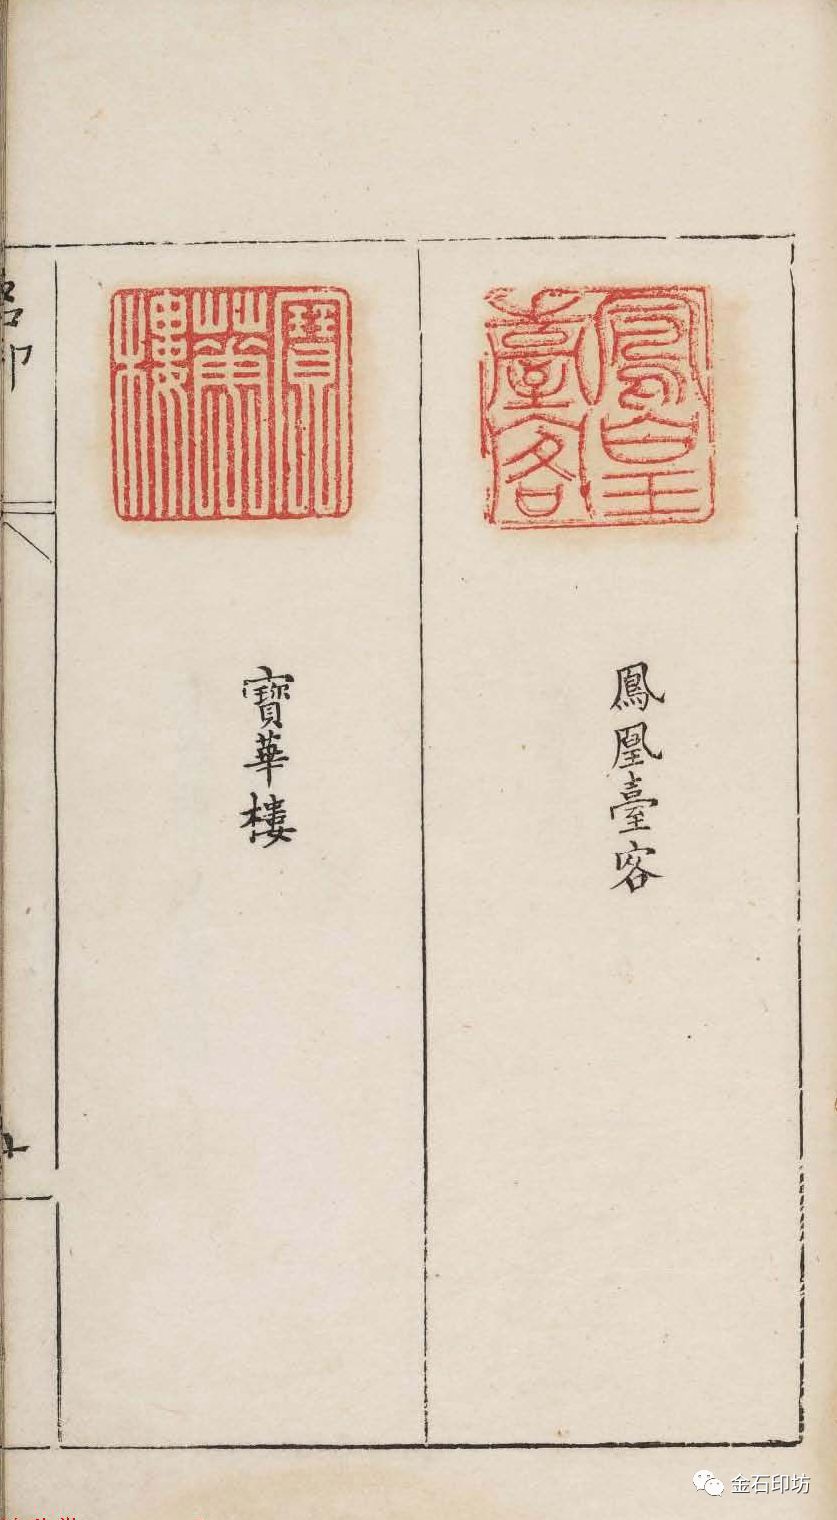 鳳皇臺客
鳳凰臺客
寶華樓
寶華樓
金石印坊